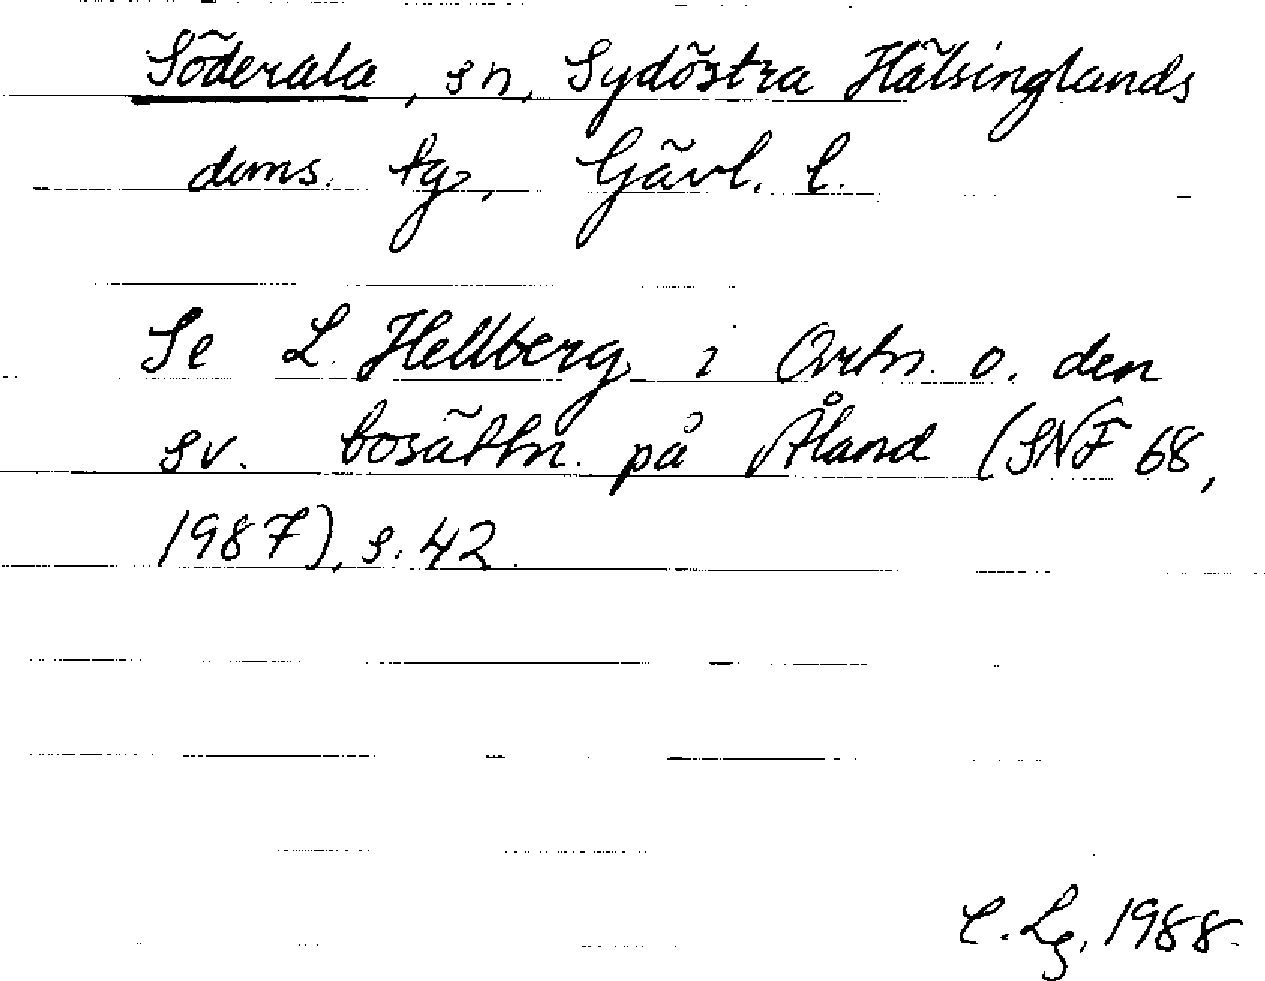 Söderala, sn, Sydöstra Hälsinglands
doms. tg, Gävl. l.
Se L. Hellberg i Ortn. o. den
sv. bosättn. på Åland (SNF 68,
1987), s. 42.
C. Lg, 1988.